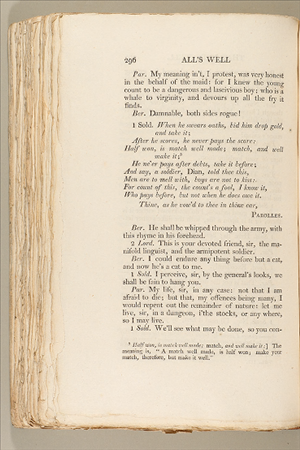 296 ALL'S WELL
Par. My meaning in't, I protest, was very honest
in the behalf of the maid: for I knew the young
count to be a dangerous and lascivious boy; who is a
whale to virginity, and devours up all the fry it
finds.
Ber. Damnable, both sides rogue!
1 Sold. When he swears oaths, bid him drop gold,
and take it;
After he scores, he never pays the score:
Half won, is match well made; match, and well
make it;⁵
He ne'er pays after debts, take it before;
And say, a soldier, Dian, told thee this,
Men are to mell with, boys are not to kiss:
For count of this, the count's a fool, I know it,
Who pays before, but not when he does owe it.
Thine, as he vow'd to thee in thine ear,
PAROLLES.
Ber. He shall be whipped through the army, with
this rhyme in his forehead.
2 Lord. This is your devoted friend, sir, the ma-
nifold linguist, and the armipotent soldier.
Ber. I could endure any thing before but a cat,
and now he's a cat to me.
1 Sold. I perceive, sir, by the general's looks, we
shall be fain to hang you.
Par. My life, sir, in any case: not that I am
afraid to die; but that, my offences being many, I
would repent out the remainder of nature: let me
live, sir, in a dungeon, i'the stocks, or any where,
so I may live.
1 Sold. We'll see what may be done, so you con-
⁵ Half won, is match well made; match, and well make it:] The
meaning is, "A match well made, is half won; make your
match, therefore, but make it well."